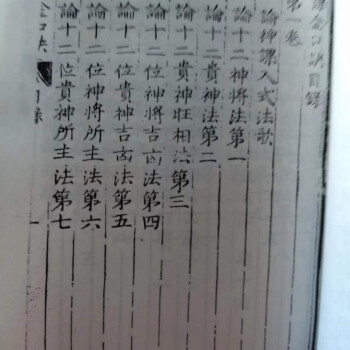 金口訣目錄
第一卷
論神課入式法歌
論十二神將法第一
論十二貴神法第二
論十二貴神旺相法第三
論十二位神將吉凶法第四
論十二位貴神吉凶法第五
論十二位神將所主法第六
論十二位貴神所主法第七
金口訣 目錄 一